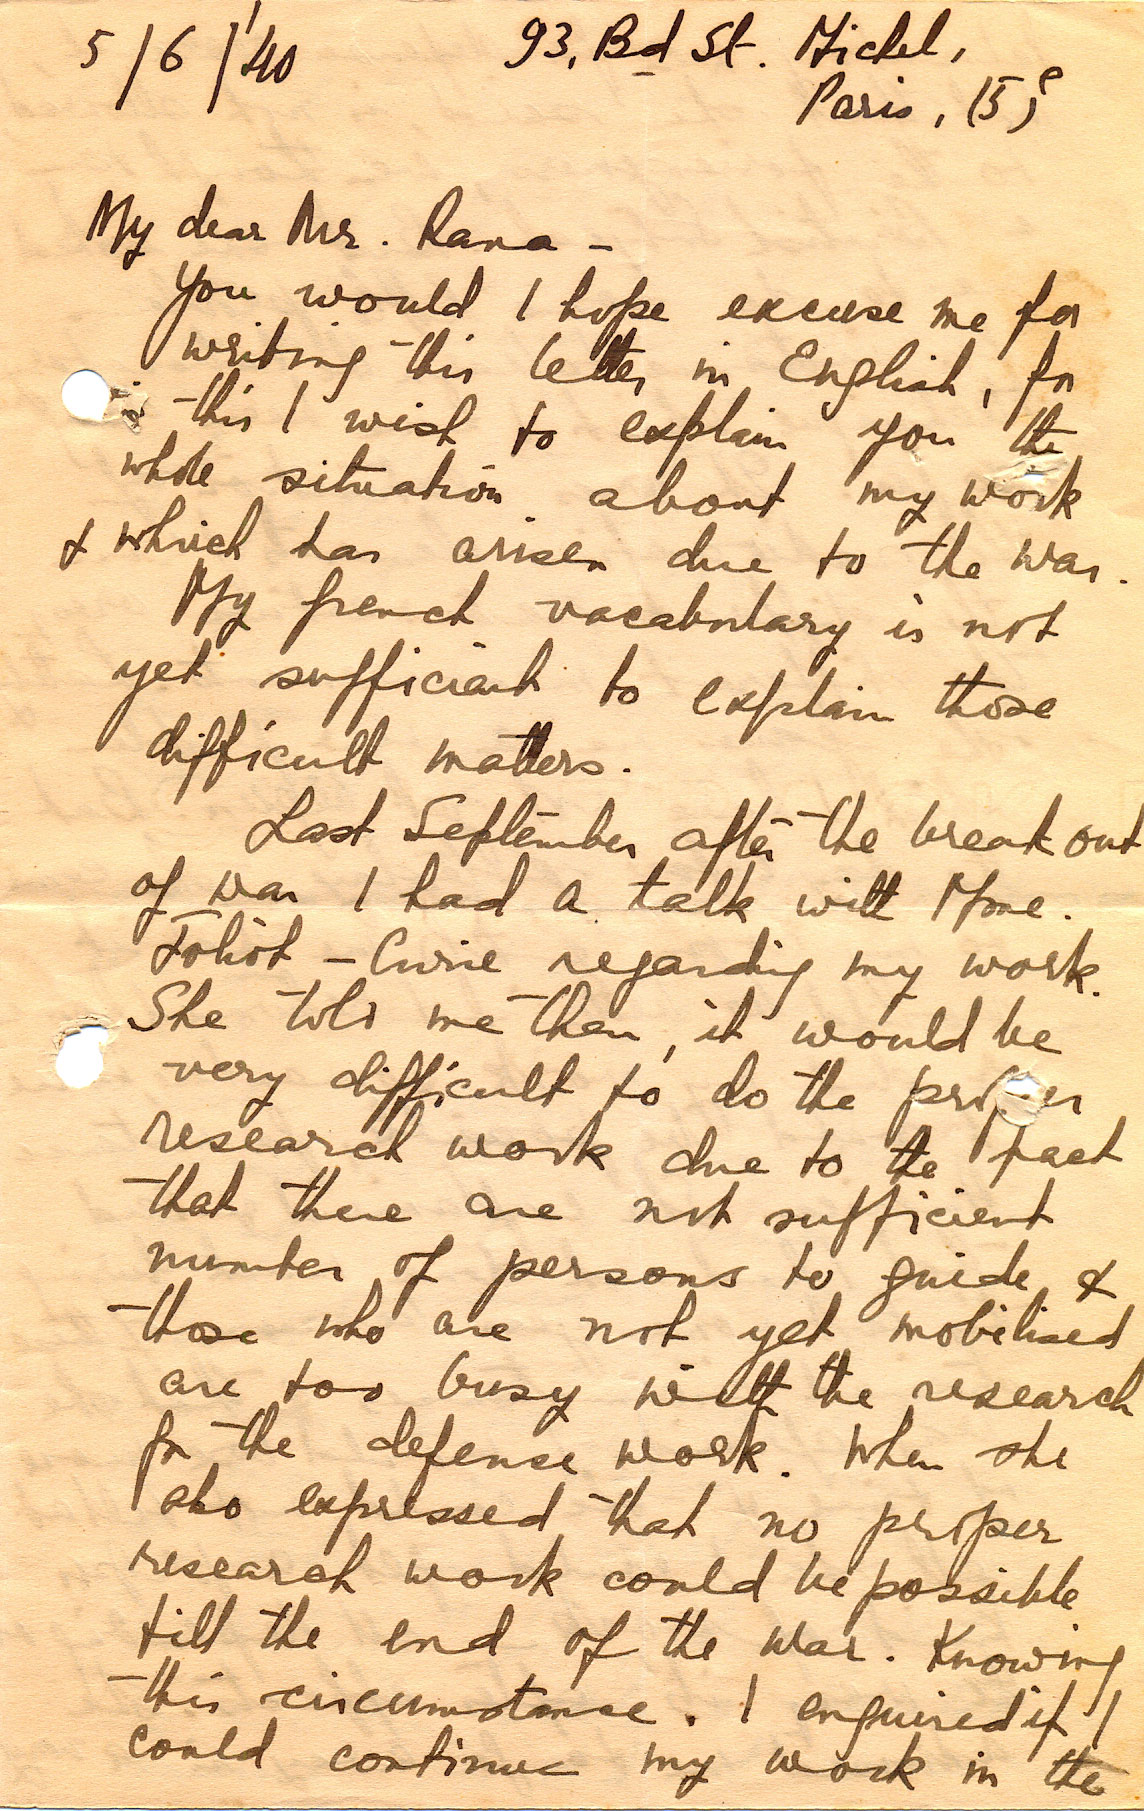 5/6/'40
93, Bd St. Michel,
Paris, (5)e
My dear Mr. Rana –
You would I hope excuse me for
writing this letter in English, for
in this I wish to explain you the
whole situation about my work
& which has arisen due to the war.
My french vocabulary is not
yet sufficient to explain those
difficult matters.
Last September after the break out
of war I had a talk with Mme.
Joliot – Curie regarding my work.
She told me then, it would be
very difficult to do the proper
research work due to the fact
that there are not sufficient
number of persons to guide &
those who are not yet mobilised
are too busy with the research
for the defense work. When she
also expressed that no proper
research work could be possible
till the end of the war. Knowing
this circumstance. I enquired if I
could continue my work in the